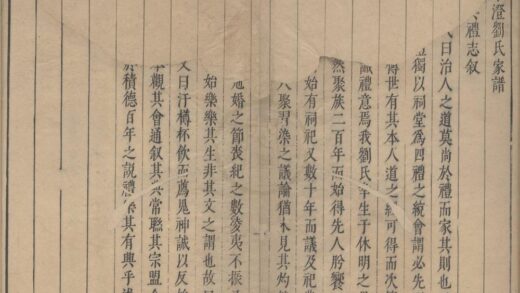 澄劉氏家譜
禮志叙
曰治人之道莫尚於禮而家其則也
獨以祠堂爲四禮之統會謂必先
世有其本人道之可得而次
禮意焉我劉氏幸生于休明之
然聚族二百年而始得先人肹饗
始有祠祀又數十年而議及祀
聚習染之議論猶未見其灼
冠婚之節喪紀之數夋夷不振
始樂樂其生非其文之謂也故
又曰汙樽杯飲而薦鬼神誠以反
觀其會通叙其典常聫其宗盟
於積德百年之説禮樂其有興乎